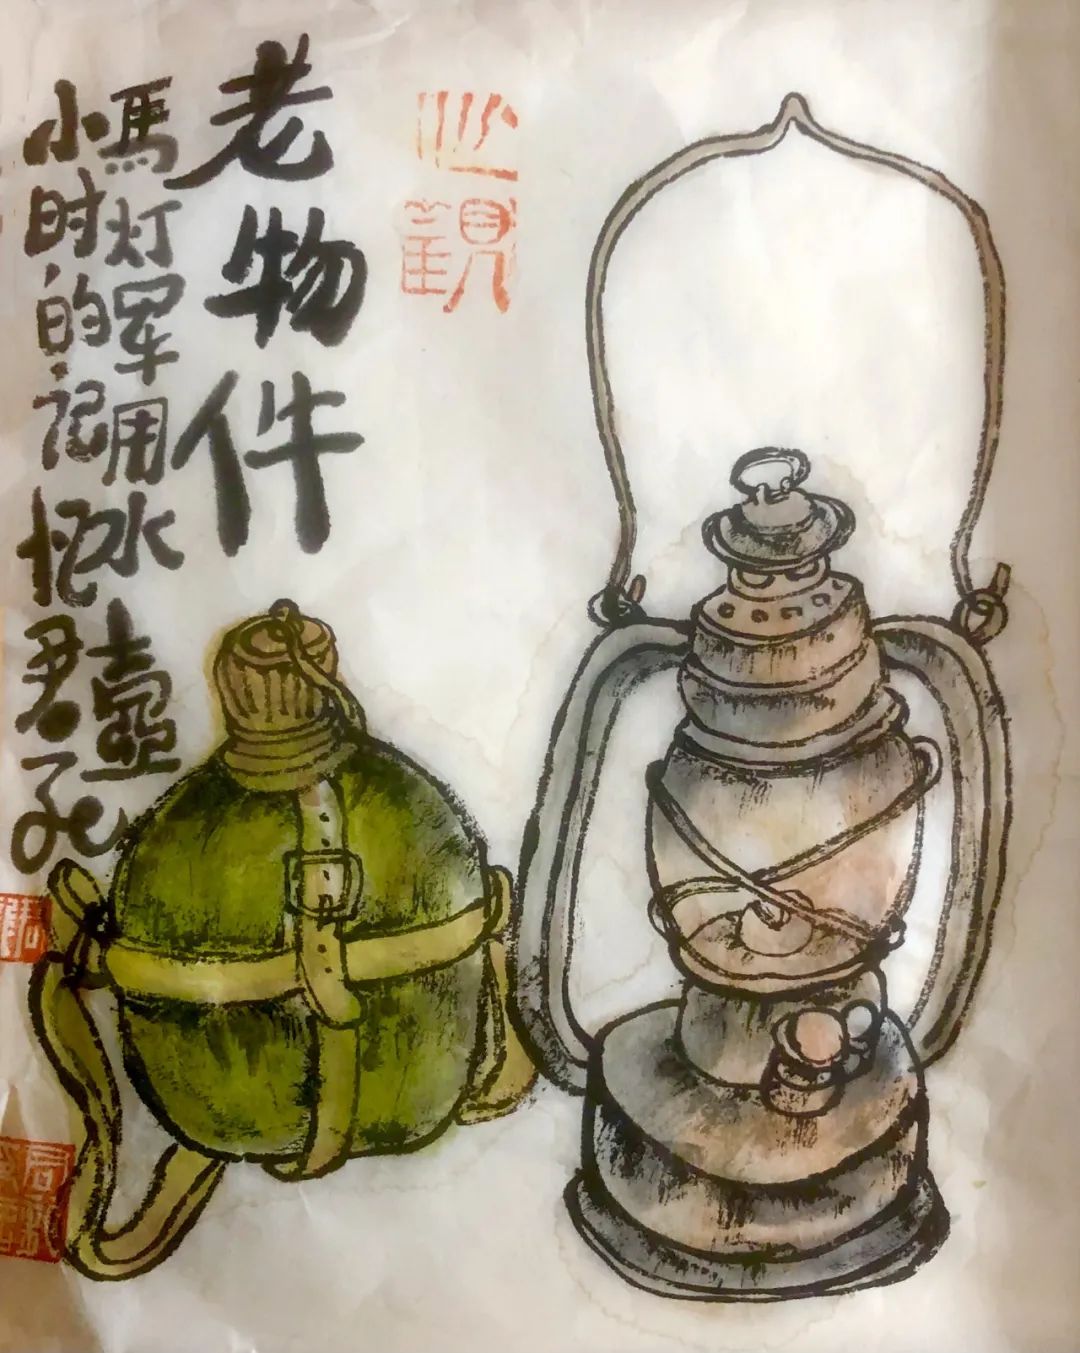 觀
老物件
馬灯军用水壺
小时的记忆君